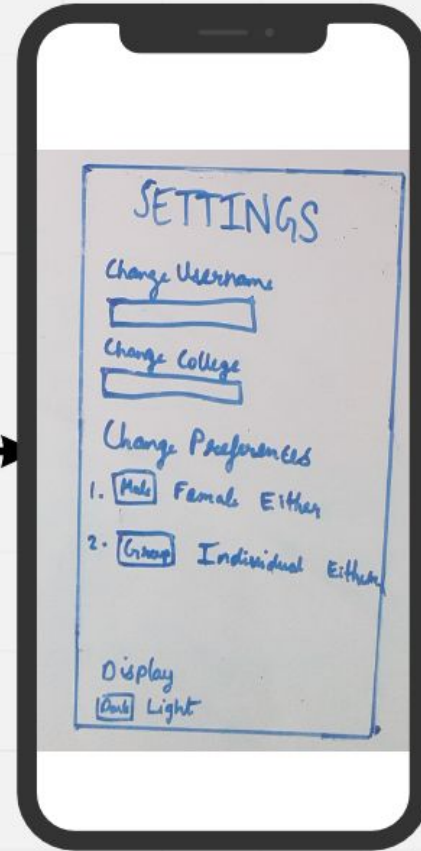 SETTINGS
Change Username
Change College
Change Preferences
1. Male Female Either
2. Group Individual Either
Display
Dark Light